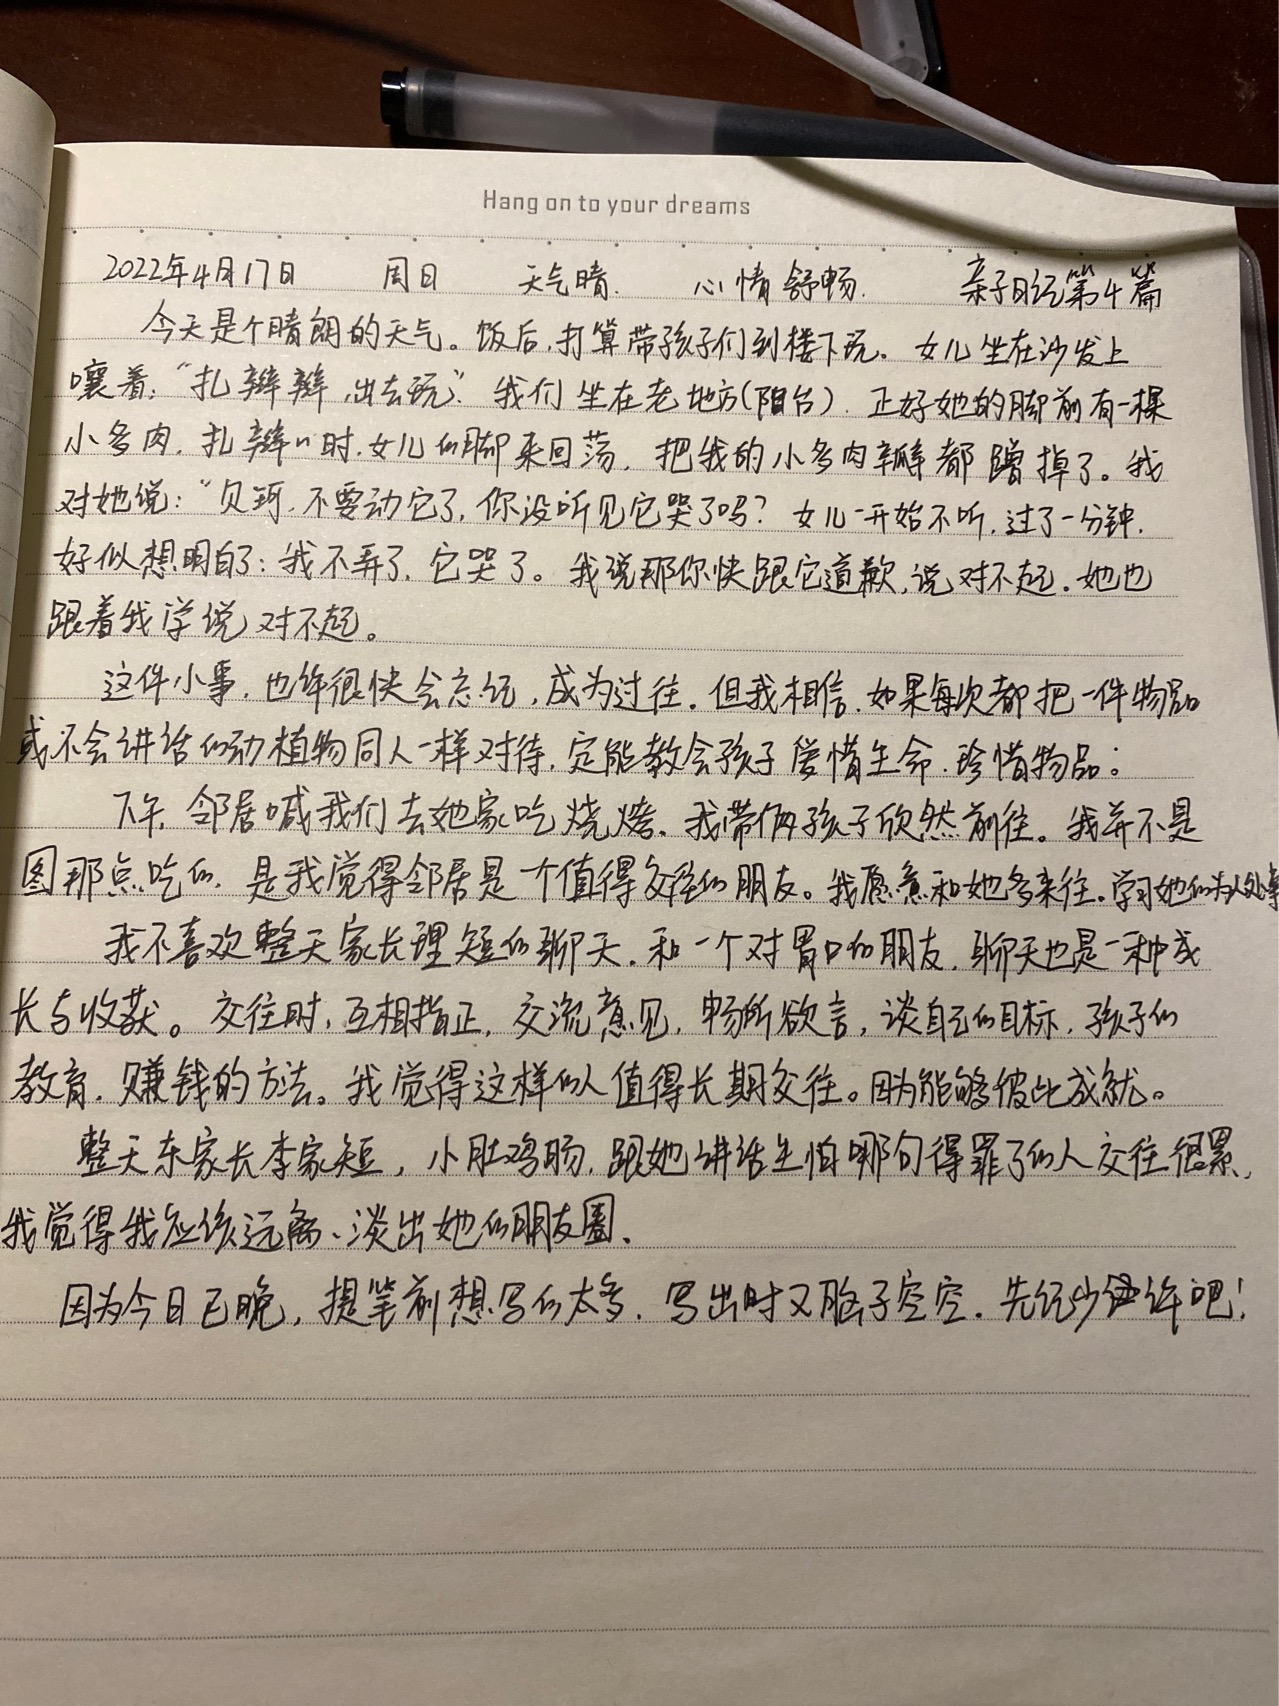 Hang on to your dreams
2022年4月17日 周日 天气晴. 心情舒畅. 亲子日记第4篇
今天是个晴朗的天气。饭后,打算带孩子们到楼下玩。女儿坐在沙发上
嚷着:“扎辫辫,出去玩”。我们坐在老地方(阳台).正好她的脚前有一棵
小多肉,扎辫子时,女儿的脚来回荡,把我的小多肉瓣都蹭掉了。我
对她说:“贝珂,不要动它了,你没听见它哭了吗?女儿一开始不听,过了一分钟,
好似想明白了:我不弄了,它哭了。我说那你快跟它道歉,说对不起.她也
跟着我学说对不起。
这件小事,也许很快会忘记,成为过往.但我相信,如果每次都把一件物品
或不会讲话的动植物同人一样对待,定能教会孩子爱惜生命.珍惜物品;
下午,邻居喊我们去她家吃烧烤.我带俩孩子欣然前往。我并不是
图那点吃的,是我觉得邻居是一个值得交往的朋友。我愿意和她多来往.学习她的为人处事
我不喜欢整天家长理短的聊天.和一个对胃口的朋友,聊天也是一种成
长与收获。交往时,互相指正,交流意见,畅所欲言,谈自己的目标,孩子的
教育,赚钱的方法。我觉得这样的人值得长期交往。因为能够彼此成就。
整天东家长李家短,小肚鸡肠,跟她讲话生怕哪句得罪了的人交往很累,
我觉得我应该远离、淡出她的朋友圈.
因为今日已晚,提笔前想写的太多,写出时又脑子空空.先记少许吧!